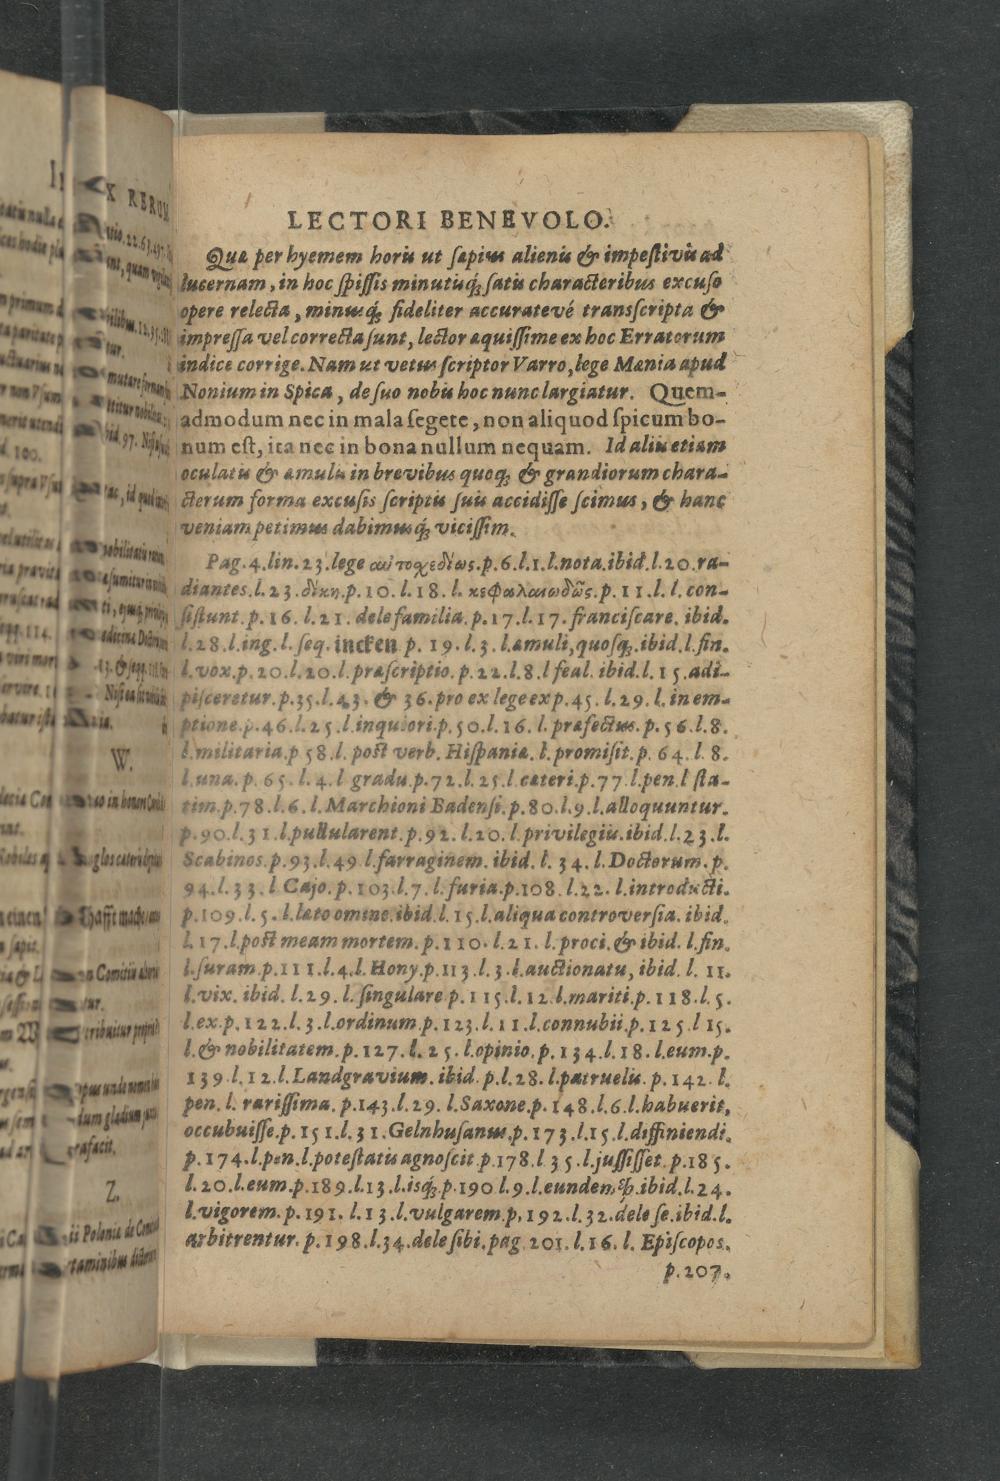 LECTORI BENEVOLO.
Quæ per hyemem horis ut sæpius alienis & impestivis ad
lucernam, in hoc spissis minutisq́; satis characteribus excuso
opere relecta, minusq́; fideliter accuratevé transscripta &
impressa vel correcta sunt, lector æquissime ex hoc Erratorum
indice corrige. Nam ut vetus scriptor Varro, lege Mænia apud
Nonium in Spica, de suo nobis hoc nunc largiatur. Quem-
admodum nec in mala segete, non aliquod spicum bo-
num est, ita nec in bona nullum nequam. Id aliis etiam
oculatis & æmulis in brevibus quoq; & grandiorum chara-
cterum forma excusis scriptis suis accidisse scimus, & hanc
veniam petimus dabimusq́; vicissim.
Pag. 4. lin. 23. lege αὐτοχεδίως. p. 6. l. 1. l. nota. ibid. l. 20. ra-
diantes. l. 23. δίκη. p. 10. l. 18. l. κεφαλαιωδῶς. p. 11. l. l. con-
sistunt. p. 16. l. 21. dele familia. p. 17. l. 17. franciscare. ibid.
l. 28. l. ing. l. seq. incken p. 19. l. 3. l. æmuli, quosq;. ibid. l. fin.
l. vox. p. 20. l. 20. l. præscriptio. p. 22. l. 8. l feal. ibid. l. 15. adi-
pisceretur. p. 35. l. 43. & 36. pro ex lege ex p. 45. l. 29. l. in em-
ptione. p. 46. l. 25. l. inquisori. p. 50. l. 16. l. præfectus. p. 56. l. 8.
l. militaria. p 58. l. post verb. Hispaniæ. l. promisit. p. 64. l. 8.
l. una. p. 65. l. 4. l gradu. p. 72. l. 25. l cæteri. p. 77. l. pen. l sta-
tim. p. 78. l. 6. l. Marchioni Badensi. p. 80. l. 9. l. alloquuntur.
p. 90. l. 31. l. pullularent. p. 92. l. 20. l. privilegiis. ibid. l. 23. l.
Scabinos. p. 93. l. 49. l. farraginem. ibid. l. 34. l. Doctorum. p.
94. l. 33. l Cajo. p. 103. l. 7. l. furia. p. 108. l. 22. l. introducti.
p. 109. l. 5. l. læto omine. ibid. l. 15. l. aliqua controversia. ibid.
l. 17. l. post meam mortem. p. 110. l. 21. l. proci. & ibid. l. fin.
l. suram. p. 111. l. 4. l. Hony. p. 113. l. 3. l. auctionatu, ibid. l. 11.
l. vix. ibid. l. 29. l. singulare p. 115. l. 12. l. mariti. p. 118. l. 5.
l. ex. p. 122. l. 3. l. ordinum. p. 123. l. 11. l. connubii. p. 125. l 15.
l. & nobilitatem. p. 127. l. 25. l. opinio. p. 134. l. 18. l. eum. p.
139. l. 12. l. Landgravium. ibid. p. l. 28. l. patruelis. p. 142. l.
pen. l. rarissima. p. 143. l. 29. l. Saxone. p. 148. l. 6. l. habuerit,
occubuisse. p. 151. l. 31. Gelnhusanus. p. 173. l. 15. l. diffiniendi.
p. 174. l. pen. l. potestatis agnoscit. p. 178. l 35. l. jussisset. p. 185.
l. 20. l. eum. p. 189. l. 13. l. isq́;. p. 190 l. 9. l. eundem. ibid. l. 24.
l. vigorem. p. 191. l. 13. l. vulgarem. p. 192. l. 32. dele se. ibid. l.
arbitrentur. p. 198. l. 34. dele sibi. pag. 201. l. 16. l. Episcopos.
p. 207.
W.
Z.